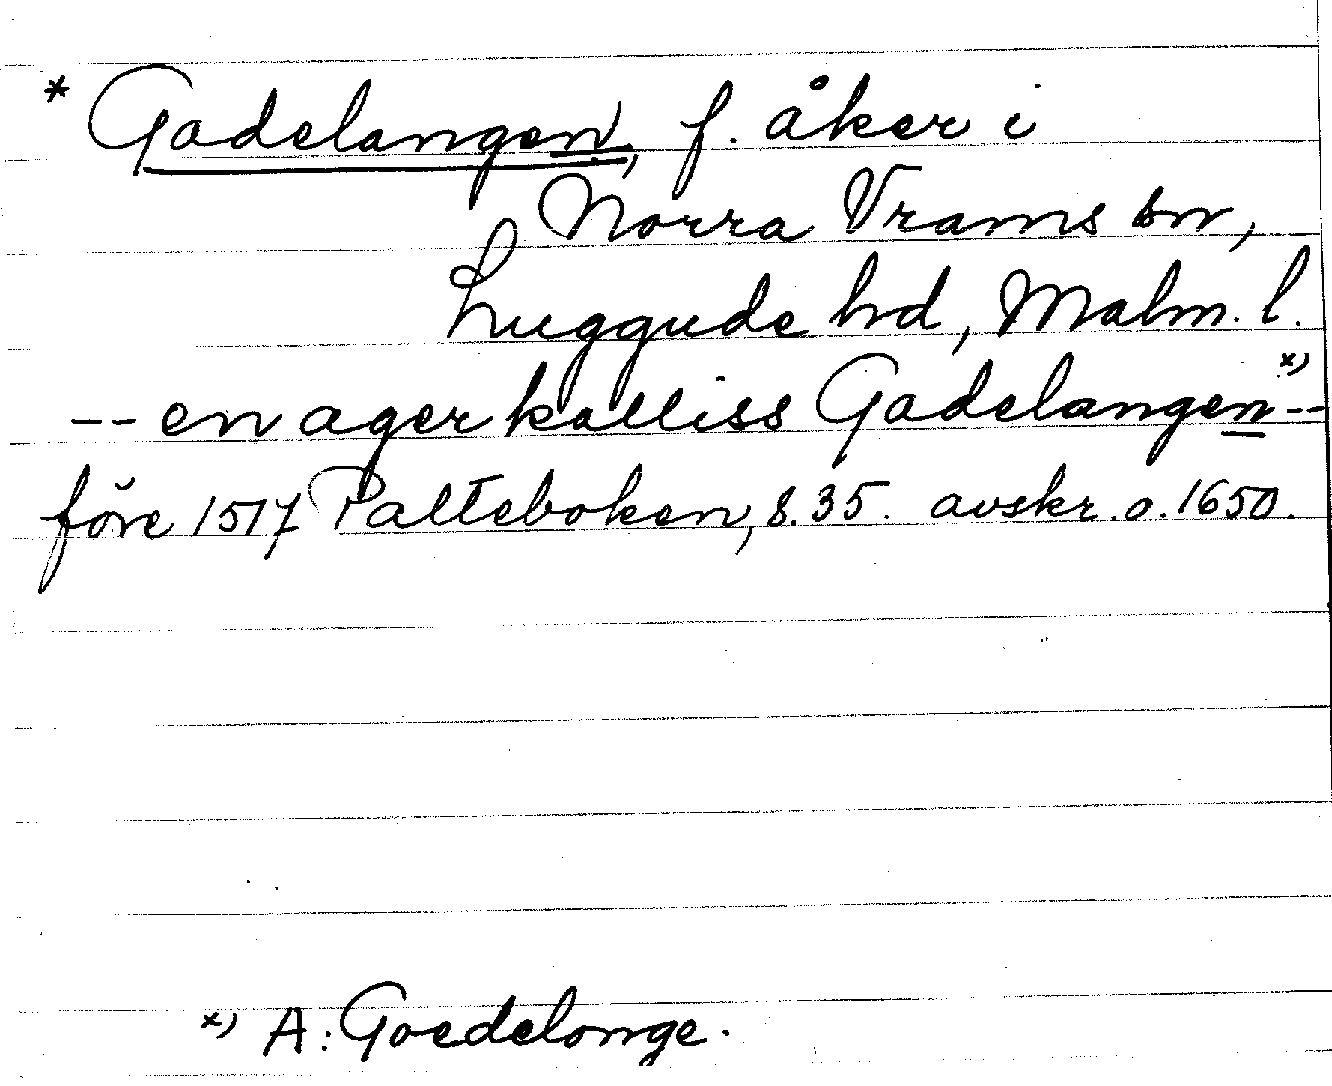 * Gadelangen, f. åker i
Norra Vrams sn,
Luggude hd, Malm. l.
-- en ager kalliss Gadelangen x) --
före 1517 Palteboken, s. 35. avskr. o. 1650.
x) A: Goedelonge.